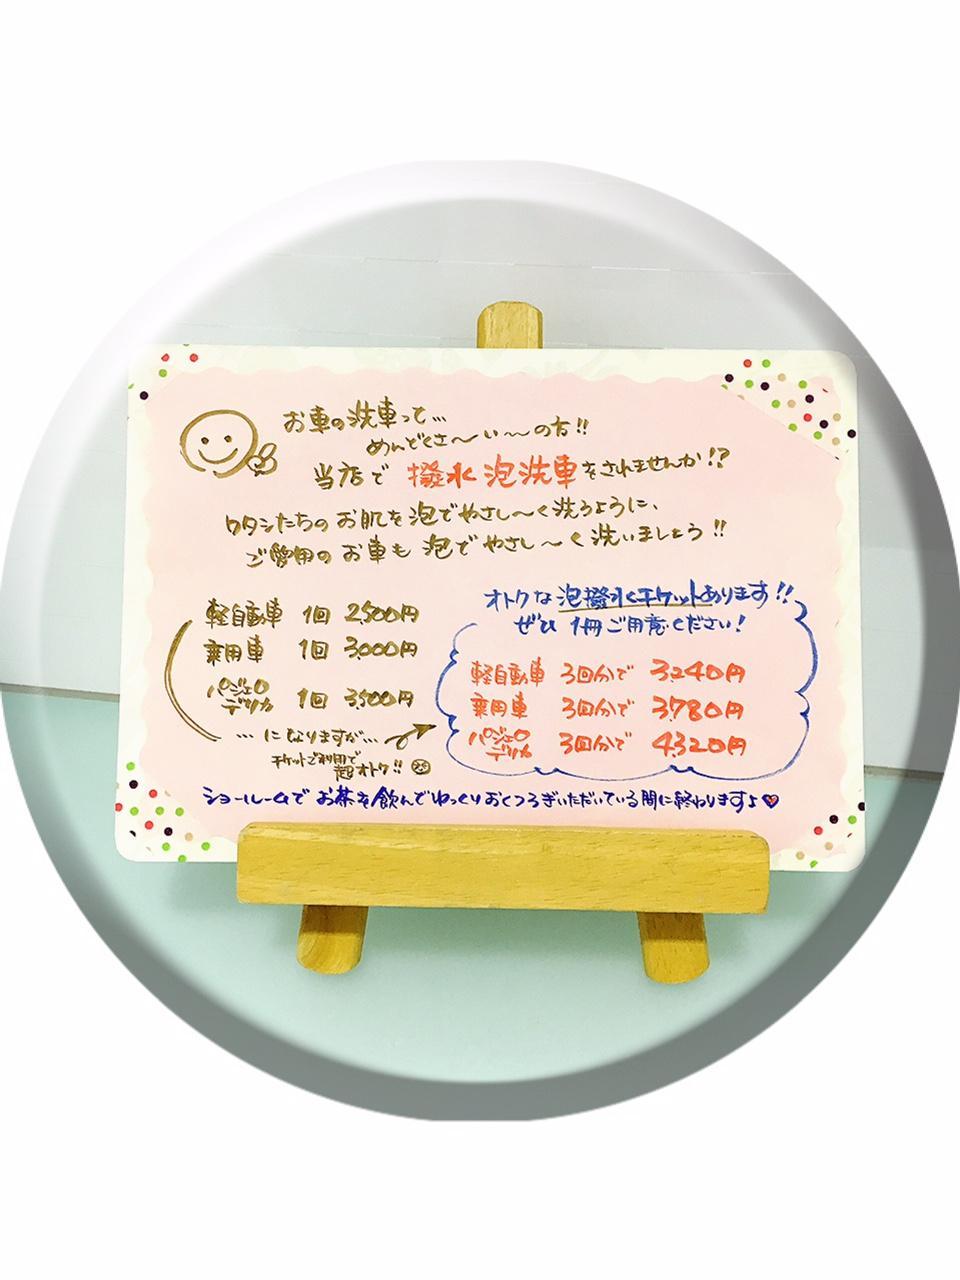 お車の洗車って…
めんどくさ～い～の方!!
当店で 撥水泡洗車をされませんか!?
ワタシたちのお肌を泡でやさし～く洗うように、
ご愛用のお車も泡でやさし～く洗いましょう!!
軽自動車 1回 2,500円
乗用車 1回 3,000円
パジェロ
デリカ 1回 3,500円
…になりますが…
チケットご利用で
超オトク!!
オトクな泡撥水チケットあります!!
ぜひ 1冊ご用意ください!
軽自動車 3回分で 3240円
乗用車 3回分で 3780円
パジェロ
デリカ 3回分で 4320円
ショールームでお茶を飲んでゆっくりおくつろぎいただいている間に終わりますよ♥